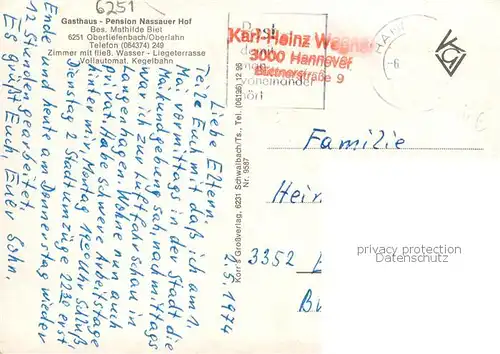 6251
Gasthaus - Pension Nassauer Hof
Bes. Mathilde Biet
6251 Obertiefenbach/Oberlahn
Telefon (064374) 249
Zimmer mit fließ. Wasser - Liegeterrasse
Vollautomat. Kegelbahn
Liebe Eltern.
Teile Euch mit daß ich am 1.
Mai vormittags in der Stadt die
Maikundgebung sah, nachmittags
war ich zur Luftfahrschau in
Langenhagen. Wohne nun auch
privat. Habe schwere Arbeitstage
hinter mir, Montag 19 Uhr Schluß
Dienstag 2 Stadtumzüge 22 30 erst
Ende und heute am Donnerstag wieder
12 Stunden gearbeitet.
Es grüßt Euch, Euer Sohn.
2.5.1974
Korr's Großverlag, 6231 Schwalbach/Ts., Tel. (06196) 12 95
Nr. 9587
damit
man
voneinander
hört
Karl-Heinz Wegner
3000 Hannover
Büttnerstraße 9
HANN
VGV
Familie
Hei
3352
privacy protection
Datenschutz